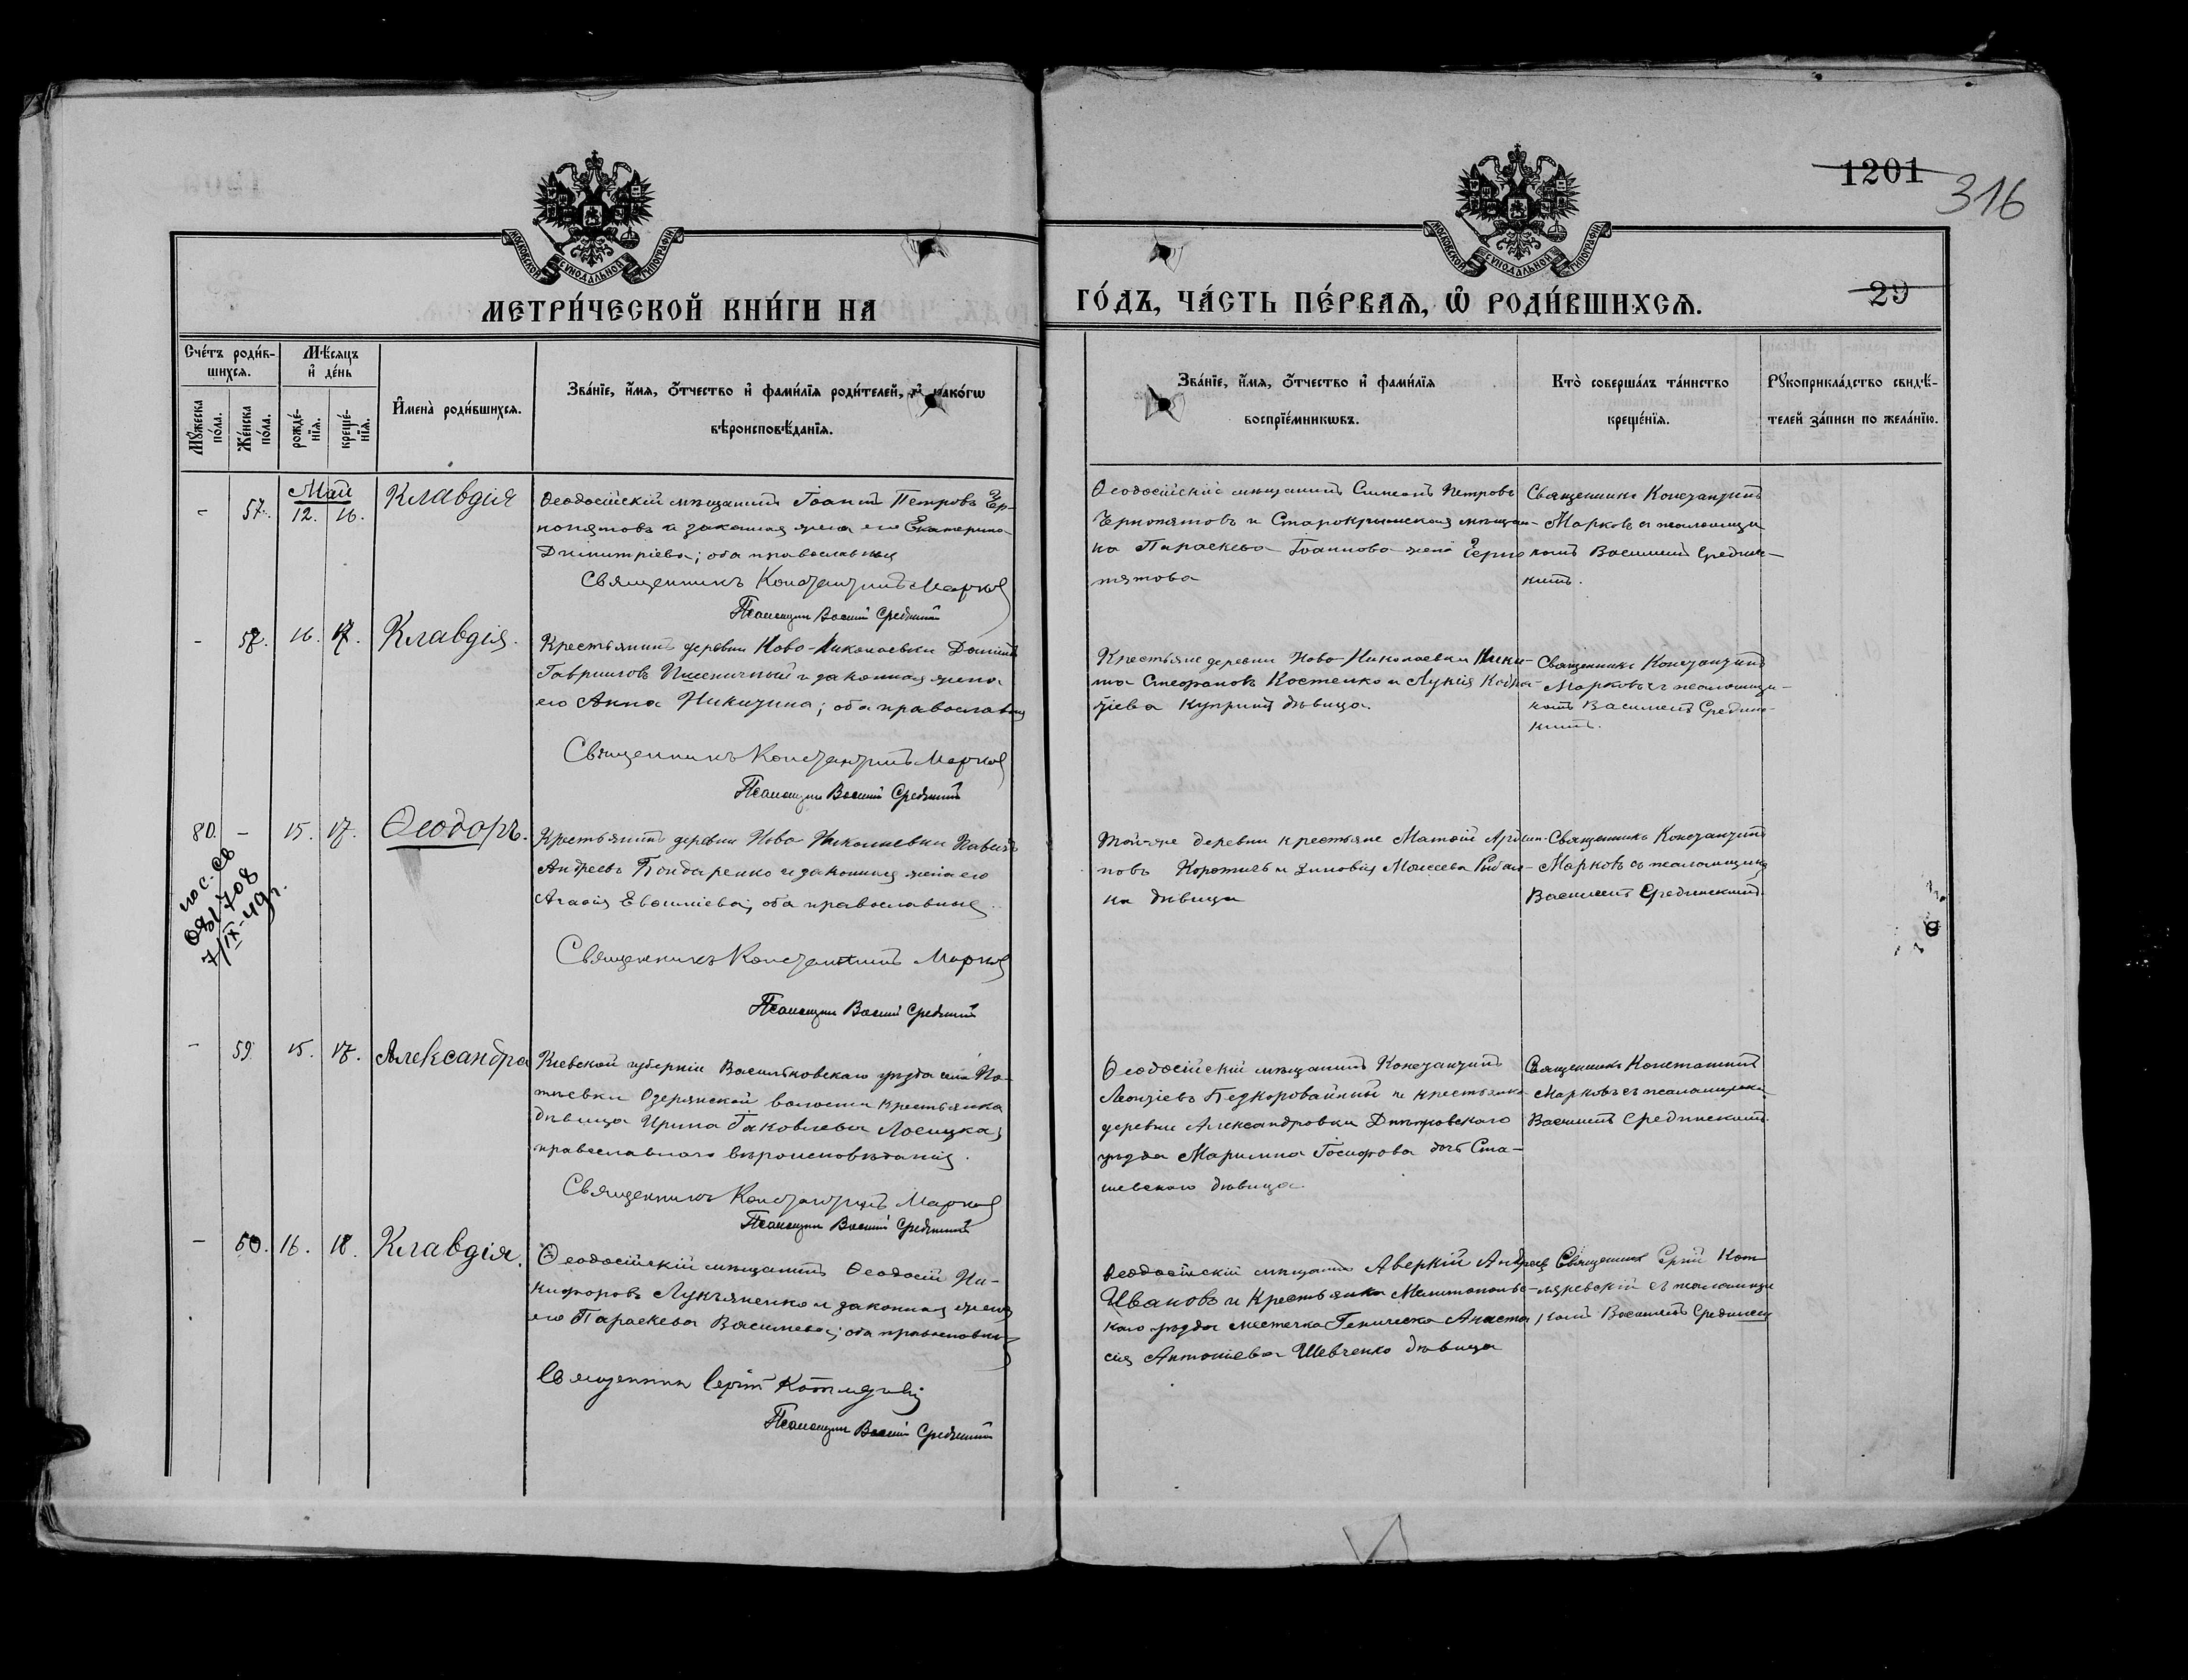 1201
316
МОСКОВСКОЙ СѴНОДАЛЬНОЙ ТИПОГРАФІИ
МОСКОВСКОЙ СѴНОДАЛЬНОЙ ТИПОГРАФІИ
МЕТРИ́ЧЕСКОЙ КНИ́ГИ НА
ГО́ДЪ, ЧА́СТЬ ПЕ́РВАѦ, Ѡ҆ РОДИ́ВШИХСѦ.
29
Сче́тъ роди́в-
шихсѧ.
Мꙋ́жеска
по́ла.
Же́нска
по́ла.
Мѣ́сѧцъ
и҆ де́нь
рожде́-
нїѧ.
креще́-
нїѧ.
И҆мена̀ роди́вшихсѧ.
Зва́нїе, и҆́мѧ, ѻ҆́тчество и҆ фами́лїѧ роди́телей, и҆ како́гѡ
вѣроисповѣ́данїѧ.
Зва́нїе, и҆́мѧ, ѻ҆́тчество и҆ фами́лїѧ
воспрїе́мникѡвъ.
Кто̀ соверша́лъ та́инство
креще́нїѧ.
Рꙋкоприкла́дство свидѣ́-
телей за́писи по жела́нїю.
Май
- 57. 12. 16. Клавдія
Ѳеодосійскій мѣщанинъ Іоаннъ Петровъ Чер-
нопятовъ и законная жена его Екатерина
Димитріева; оба православные
Священникъ Константинъ Марковъ
Псаломщикъ Василій Срединскій
Ѳеодосійскій мѣщанинъ Симеонъ Петровъ
Чернопятовъ и Старокрымская мѣщан-
ка Параскева Іоаннова жена Черно
пятова
Священникъ Константинъ
Марковъ съ псаломщи
комъ Василіемъ Средин-
кимъ.
- 58. 16. 17. Клавдія.
Крестьянинъ деревни Ново-Николаевки
Гавриловъ Пшеничный и законная жена
его Анна Никитина; оба православные
Священникъ Константинъ Марковъ
Псаломщикъ Василій Срединскій
Крестьяне деревни Ново-Николаевки Ники-
та Стефановъ Костенко и Лукія
дѣвица.
Священникъ Константинъ
Марковъ съ псаломщи-
комъ Василіемъ Средин-
кимъ.
80. - 15. 17. Ѳеодоръ.
708
7/IX-49 г.
Крестьянинъ деревни Ново Николаевки Павелъ
Андреевъ Бондаренко и законная жена его
Агаѳія Евѳиміева; оба православные
Священникъ Константинъ Марковъ
Псаломщикъ Василій Срединскій
Той же деревни крестьяне Матѳій
новъ и Зиновія Моисеева Рыбал-
ка дѣвица
Священникъ Константинъ
Марковъ съ псаломщикомъ
Василіемъ Срединскимъ.
- 59. 15. 17. Александра
Кіевской губерніи Васильковскаго уѣзда села По-
Озерянской волости крестьянка
дѣвица Ирина Іаковлева Лосицкая;
православнаго вѣроисповѣданія.
Священникъ Константинъ Марковъ
Псаломщикъ Василій Срединскій
Ѳеодосійскій мѣщанинъ Константинъ
Леонтіевъ и крестьянка
деревни Александровки Днѣпровскаго
уѣзда Марина Іосифова дочь Ста-
шевскаго дѣвица.
Священникъ Константинъ
Марковъ съ псаломщикомъ
Василіемъ Срединскимъ.
- 60. 16. 18. Клавдія.
Ѳеодосійскій мѣщанинъ Ѳеодосій Ни-
кифоровъ Лукьяненко и законная жена
его Параскева Василіева; оба православные
Священникъ Сергій
Псаломщикъ Василій Срединскій
Ѳеодосійскій мѣщанинъ Аверкій Андреевъ
Ивановъ и крестьянка Мелитопольс-
каго уѣзда местечка Геническа Анаста
сія Антоніева Шевченко дѣвица
Священникъ Сергій Кот
ляревскій съ псаломщи
комъ Василіемъ Срединскимъ